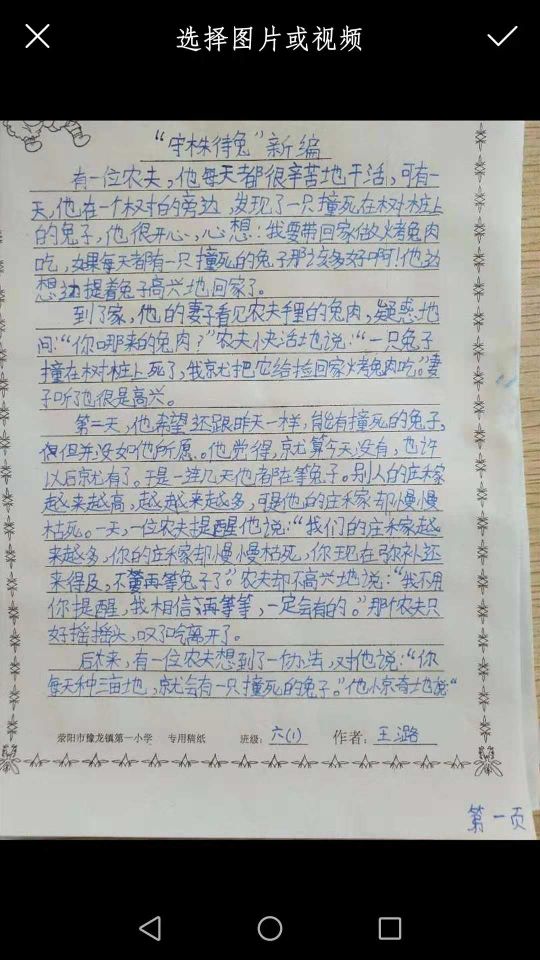 选择图片或视频
“守株待兔”新编
有一位农夫，他每天都很辛苦地干活，可有一
天，他在一个树桩的旁边，发现了一只撞死在树桩上
的兔子，他很开心，心想：我要带回家做烤兔肉
吃，如果每天都有一只撞死的兔子那该多好啊！他边
想边提着兔子高兴地回家了。
到了家，他的妻子看见农夫手里的兔肉，疑惑地
问：“你哪来的兔肉？”农夫快活地说：“一只兔子
撞在树桩上死了，我就把它给捡回家烤兔肉吃。”妻
子听了也很是高兴。
第二天，他希望还跟昨天一样，能有撞死的兔子，
但并没如他所愿。他觉得，就算今天没有，也许
以后就有了。于是一连几天他都在等兔子。别人的庄稼
越来越高，越越来越多，可是他的庄稼却慢慢
枯死。一天，一位农夫提醒他说：“我们的庄稼越
来越多，你的庄稼却慢慢枯死，你现在弥补还
来得及，不要再等兔子了。”农夫却不高兴地说：“我不用
你提醒，我相信再等等，一定会有的。”那个农夫只
好摇摇头，叹了口气离开了。
后来，有一位农夫想到了一个办法，对他说：“你
每天种三亩地，就会有一只撞死的兔子。”他惊奇地说“
荥阳市豫龙镇第一小学 专用稿纸 班级：六(1) 作者：王潞
第一页